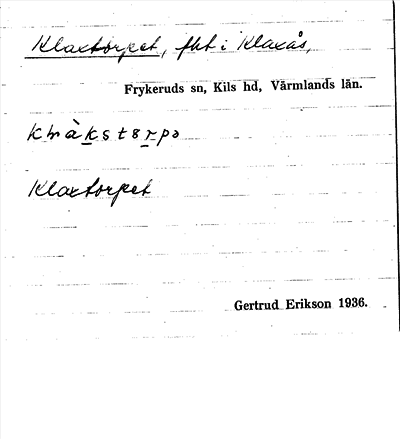 Klaxtorpet, fht i Klaxås,
Frykeruds sn, Kils hd, Värmlands län.
Klaxtorpet
Gertrud Erikson 1936.